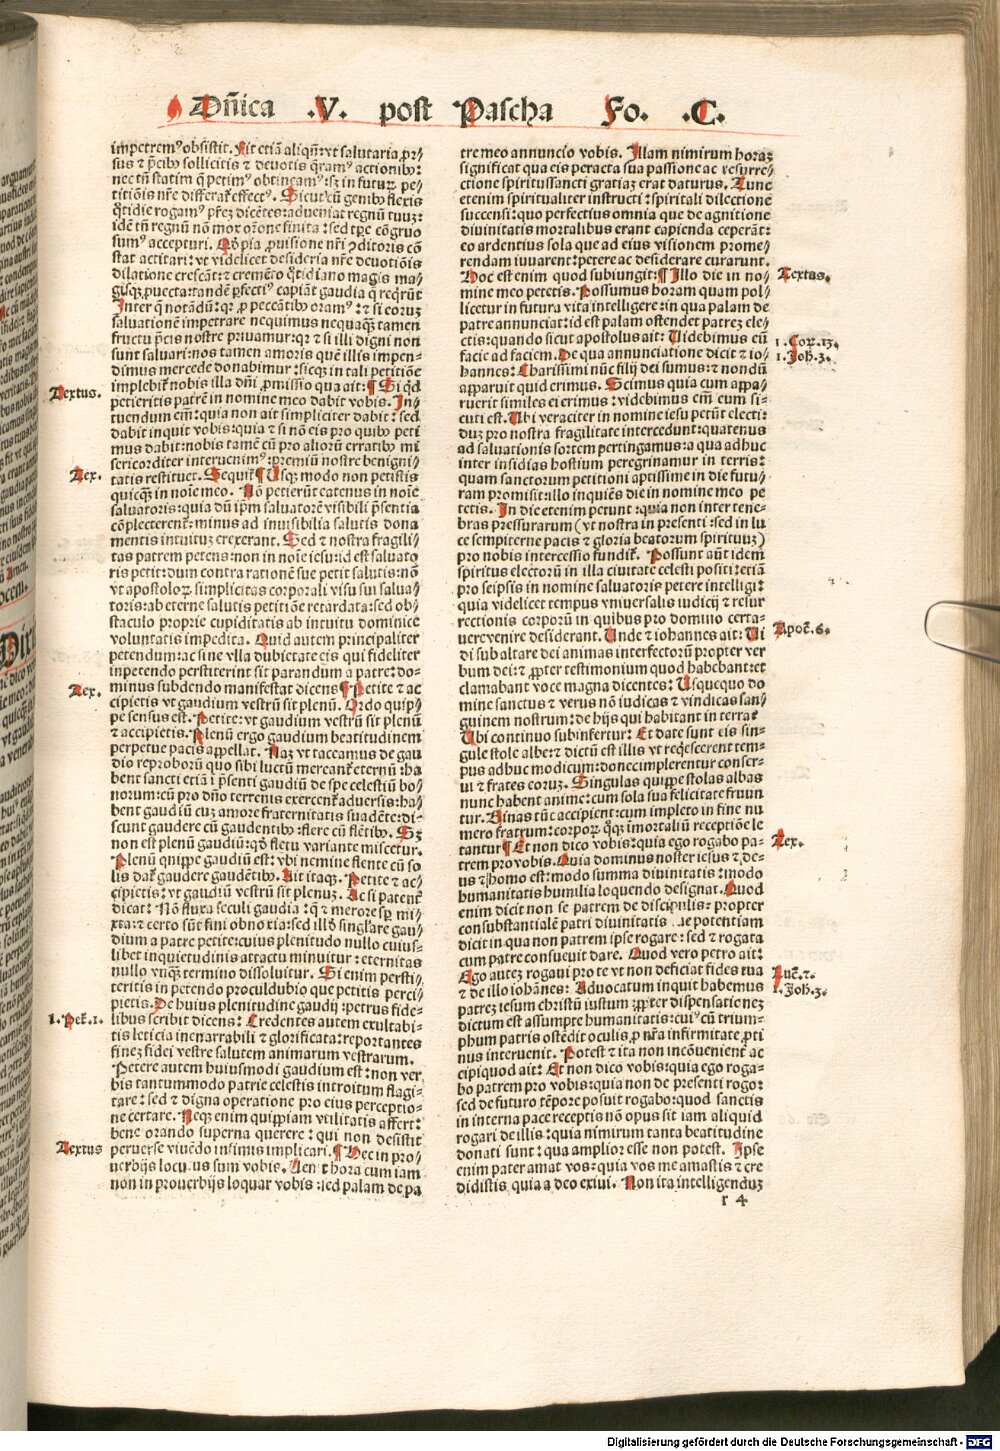 Dñica .V. post Pascha Fo. .C.
impetremꝰ obsistit. Fit etiã aliqñ: vt salutaria ꝓr⸗
sus ⁊ p̃cibꝫ sollicitis ⁊ deuotis q̃ramꝰ actionibꝫ:
nec tñ statim q̃ petimꝰ obtineamꝰ: sꝫ in futurꝫ pe⸗
titiõis nr̃e differat̃ effectꝰ. Sicut cũ genibꝫ flexis
q̃tidie rogamꝰ pr̃eꝫ dicẽtes: adueniat regnũ tuuꝫ:
idẽ tñ regnũ nõ mox or̃one finita: sed tp̃e cõgruo
sumꝰ accepturi. Qð pia ꝓuisione nr̃i ꝯditoris cõ
stat actitari: vt videlicet desideria nr̃e deuotiõis
dilatione crescãt: ⁊ cremẽto q̃tidiano magis ma⸗
gisqꝫ ꝓuecta: tandẽ ꝑfectiꝰ capiãt gaudia q̃ reqrũt
Inter q̃ notãdũ: qꝛ ꝓ peccãtibꝫ oramꝰ: ⁊ si eoruꝫ
saluationẽ impetrare nequimus nequaqꝫ̃ tamen
fructu p̃cis nostre priuamur: qꝛ ⁊ si illi digni non
sunt saluari: nos tamen amoris quẽ illis impen⸗
dimus mercede donabimur: sicqꝫ in tali petitiõe
implebit̃ nobis illa dñi ꝓmissio qua ait: ¶ Si qð
Textus.
petieritis patrẽ in nomine meo dabit vobis. In⸗
tuendum em̃: quia non ait simpliciter dabit: sed
dabit inquit vobis: quia ⁊ si nõ eis pro quibꝫ peti
mus dabit: nobis tamẽ cũ pro aliorũ erratibꝫ mi
sericorditer interuenimꝰ: premiũ nostre benigni⸗
tatis restituet. Sequit̃ ¶ Usqꝫ modo non petistis
Tex.
quicqꝫ̃ in noĩe meo. Nõ petierũt eatenus in noĩe
saluatoris: quia dũ ip̃m saluatorẽ visibili p̃sentia
cõplecterent̃: minus ad inuisibilia salutis dona
mentis intuitũ erexerant. Sed ⁊ nostra fragili⸗
tas patrem petens: non in noĩe iesu: id est saluato
ris petit: dum contra rationẽ sue petit salutis: nõ
vt apostoloꝝ simplicitas corporali visu sui salua⸗
toris: ab eterne salutis petitiõe retardata: sed ob⸗
staculo proprie cupiditatis ab intuitu dominice
voluntatis impedita. Quid autem principaliter
petendum: ac sine vlla dubietate eis qui fideliter
inpetendo perstiterint sit parandum a patre: do⸗
minus subdendo manifestat dicens ¶ Petite ⁊ ac
Tex.
cipietis vt gaudium vestrũ sit plenũ. Ordo quip⸗
pe sensus est. Petite: vt gaudium vestrũ sit plenũ
⁊ accipietis. Plenũ ergo gaudium beatitudinem
perpetue pacis appellat. Naꝫ vt taccamus de gau
dio reproborũ quo sibi luctũ mercant̃ eternũ: ha
bent sancti etiã ĩ p̃senti gaudiũ de spe celestiũ bo⸗
norum: cũ pro dño terrenis exercent̃ aduersis: ha⸗
bent gaudiũ cuꝫ amore fraternitatis suadẽte: di⸗
scunt gaudere cũ gaudentibꝫ: flere cũ flẽtibꝫ. Sꝫ
non est plenũ gaudiũ: qð fletu variante miscetur.
Plenũ quippe gaudiũ est: vbi nemine flente cũ so⸗
lis dat̃ gaudere gaudẽtibꝫ. Ait itaqꝫ. Petite ⁊ ac⸗
cipietis: vt gaudiũ vestrũ sit plenuꝫ. Ac si patent̃
dicat: Nõ fluxa seculi gaudia: q̃ ⁊ merore sp̃ mi⸗
xta: ⁊ certo sũt fini obnoxia: sed illð singlare gau⸗
dium a patre petite: cuius plenitudo nullo cuius⸗
libet inquietudinis attactu minuitur: ⁊ eternitas
nullo vnqꝫ̃ termino dissoluitur. Si enim persti⸗
teritis in petendo proculdubio que petitis perci⸗
pietis. De huius plenitudine gaudij: petrus fide⸗
libus scribit dicens: Credentes autem exultabi⸗
1. Pet̃.1.
tis leticia inenarrabili ⁊ glorificata: reportantes
fineꝫ fidei vestre salutem animarum vestrarum.
Petere autem huiusmodi gaudium est: non ver
bis tantummodo patrie celestis introitum flagi⸗
tare: sed ⁊ digna operatione pro eius perceptio⸗
ne certare. Neqꝫ enim quippiam vtilitatis affert:
bene orando superna querere: qui non desistit
peruerse viuẽdo infimis implicari. ¶ Hec in pro⸗
Textus
uerbijs locutus sum vobis. Uenit hora cum iam
non in prouerbijs loquar vobis: sed palam de pa
tre meo annuncio vobis. Illam nimirum horaꝫ
significat qua eis peracta sua passione ac resurre⸗
ctione spiritussancti gratiaꝫ erat daturus. Tunc
etenim spiritualiter instructi: spiritali dilectione
succensi: quo perfectius omnia que de agnitione
diuinitatis mortalibus erant capienda ceperãt:
eo ardentius sola que ad eius visionem prome⸗
rendam iuuarent: petere ac desiderare curarunt.
Hoc est enim quod subiungit: ¶ Illo die in no⸗
Textus.
mine meo petetis. Possumus horam quam pol⸗
licetur in futura vita intelligere: in qua palam de
patre annunciat: id est palam ostendet patreꝫ ele⸗
ctis: quando sicut apostolus ait: Uidebimus eũ
1. Coꝝ.13.
facie ad faciem. De qua annunciatione dicit ⁊ io⸗
1. Joh̃.3.
hannes: Charissimi nũc filij dei sumus: ⁊ nondũ
apparuit quid erimus. Scimus quia cum appa⸗
ruerit similes ei erimus: videbimus em̃ eum si⸗
cuti est. Ubi veraciter in nomine iesu petũt electi:
duꝫ pro nostra fragilitate intercedunt: quatenus
ad saluationis sortem pertingamus: a qua adhuc
inter insidias hostium peregrinamur in terris:
quam sanctorum petitioni aptissime in die futu⸗
ram promisit: illo inquiẽs die in nomine meo pe
tetis. In die etenim petunt: quia non inter tene⸗
bras pressurarum (vt nostra in presenti: sed in lu
ce sempiterne pacis ⁊ gloria beatorum spirituuꝫ)
pro nobis intercessio fundit̃. Possunt aũt idem
spiritus electorũ in illa ciuitate celesti positi: etiã
pro seipsis in nomine saluatoris petere intelligi:
quia videlicet tempus vniuersalis iudicij ⁊ resur
rectionis corporũ in quibus pro domino certa⸗
uere venire desiderant. Unde ⁊ iohannes ait: Ui
Apoc̃.6.
di sub altare dei animas interfectorũ propter ver
bum dei: ⁊ ꝓpter testimonium quod habebant: et
clamabant voce magna dicentes: Usquequo do
mine sanctus ⁊ verus nõ iudicas ⁊ vindicas san⸗
guinem nostrum: de hijs qui habitant in terra?
Ubi continuo subinfertur: Et date sunt eis sin⸗
gule stole albe: ⁊ dictũ est illis vt reqescerent tem⸗
pus adhuc modicum: donec implerentur conser⸗
ui ⁊ frates coruꝫ. Singulas quippe stolas albas
nunc habent anime: cum sola sua felicitate fruun
tur. Binas tũc accipient: cum impleto in fine nu
mero fratrum: corpoꝝ qꝫ̃ imortaliũ receptiõe le
tantur ¶ Et non dico vobis: quia ego rogabo pa⸗
Tex.
trem pro vobis. Quia dominus noster iesus ⁊ de⸗
us ⁊ homo est: modo summa diuinitatis: modo
humanitatis humilia loquendo designat. Quod
enim dicit non se patrem de discipulis: propter
consubstantialẽ patri diuinitatis sue potentiam
dicit in qua non patrem ipse rogare: sed ⁊ rogata
cum patre consueuit dare. Quod vero petro ait:
Ego auteꝫ rogaui pro te vt non deficiat fides tua
Luc̃.⁊.
⁊ de illo iohãnes: Aduocatum inquit habemus
1. Joh̃.3.
patreꝫ iesum christũ iustum: ꝓpter dispensationeꝫ
dictum est assumpte humanitatis: cuiꝰ cũ trium⸗
phum patris ostẽdit oculis, ꝓ nr̃a infirmitate ꝓti
nus interuenit. Potest ⁊ ita non incõuenient̃ ac
cipi quod ait: Et non dico vobis: quia ego roga⸗
bo patrem pro vobis: quia non de presenti rogo:
sed de futuro tẽpore posuit rogabo: quod sanctis
in interna pace receptis nõ opus sit iam aliquid
rogari de illis: quia nimirum tanta beatitudine
donati sunt: qua amplior esse non potest. Ipse
enim pater amat vos: quia vos me amastis ⁊ cre
didistis quia a deo exiui. Non ita intelligenduꝫ
r 4
Digitalisierung gefördert durch die Deutsche Forschungsgemeinschaft - DFG